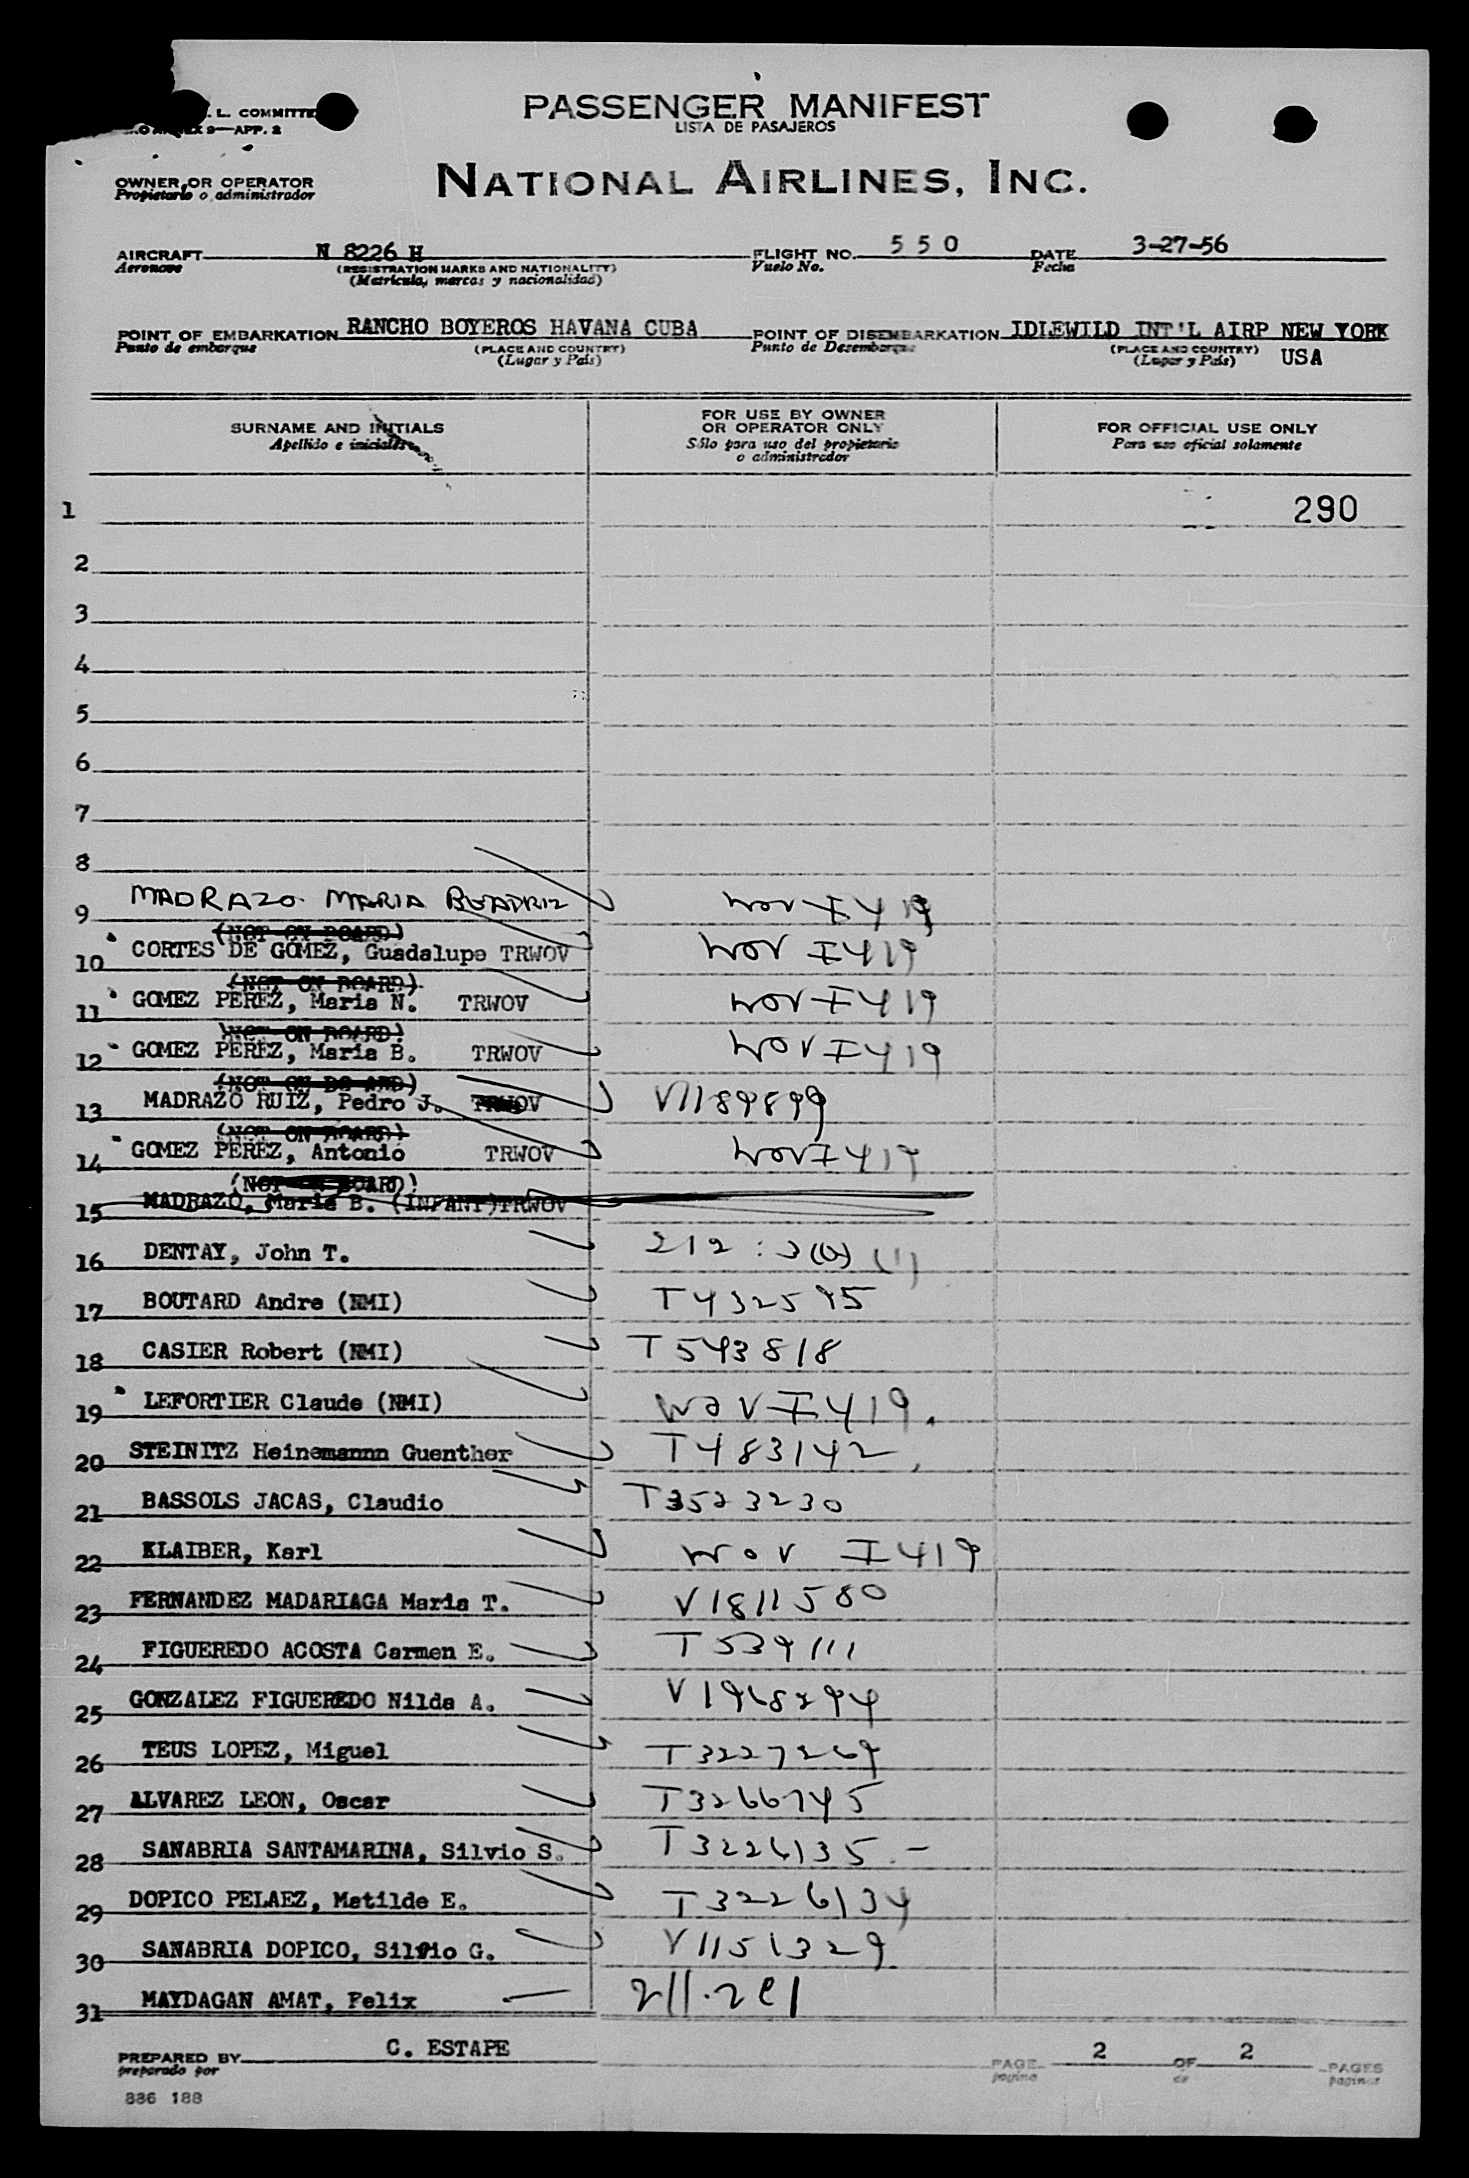 L. COMMITTE
9—APP. 2
PASSENGER MANIFEST
LISTA DE PASAJEROS
OWNER OR OPERATOR
Propietario o administrador
NATIONAL AIRLINES, INC.
AIRCRAFT N 8226 H FLIGHT NO. 5 5 0 DATE 3-27-56
Aeronave (REGISTRATION MARKS AND NATIONALITY) Vuelo No. Fecha
(Matrícula, marcas y nacionalidad)
POINT OF EMBARKATION RANCHO BOYEROS HAVANA CUBA POINT OF DISEMBARKATION IDLEWILD INT'L AIRP NEW YORK
Punto de embarque (PLACE AND COUNTRY) Punto de Desembarque (PLACE AND COUNTRY) USA
(Lugar y País) (Lugar y País)
SURNAME AND INITIALS FOR USE BY OWNER OR OPERATOR ONLY FOR OFFICIAL USE ONLY
Apellido e iniciales Sólo para uso del propietario o administrador Para uso oficial solamente
1 290
2
3
4
5
6
7
8
9 MADRAZO MARIA BEADRIZ WOV I419
(NOT ON BOARD)
10 CORTES DE GOMEZ, Guadalupe TRWOV WOV I419
(NOT ON BOARD)
11 GOMEZ PEREZ, Maria N. TRWOV WOV I419
(NOT ON BOARD)
12 GOMEZ PEREZ, Maria B. TRWOV WOV I419
(NOT ON BO ARD)
13 MADRAZO RUIZ, Pedro J. TRWOV V1189899
(NOT ON BOARD)
14 GOMEZ PEREZ, Antonio TRWOV WOV I419
(NOT ON BOARD)
15 MADRAZO, Maria B. (INFANT)TRWOV
16 DENTAY, John T. 212
17 BOUTARD Andre (NMI)
18 CASIER Robert (NMI) T543818
19 LEFORTIER Claude (NMI) WOV I419.
20 STEINITZ Heinemannn Guenther T483142
21 BASSOLS JACAS, Claudio T3523230
22 KLAIBER, Karl WOV I419
23 FERNANDEZ MADARIAGA Maria T. V1811580
24 FIGUEREDO ACOSTA Carmen E. T539111
25 GONZALEZ FIGUEREDO Nilda A. V1968294
26 TEUS LOPEZ, Miguel T3227269
27 ALVAREZ LEON, Oscar T3266745
28 SANABRIA SANTAMARINA, Silvio S. T3226135.-
29 DOPICO PELAEZ, Matilde E. T3226134
30 SANABRIA DOPICO, Silvio G. V1151329
31 MAYDAGAN AMAT, Felix
PREPARED BY C. ESTAPE PAGE 2 OF 2 PAGES
preparado por página de páginas
886 188